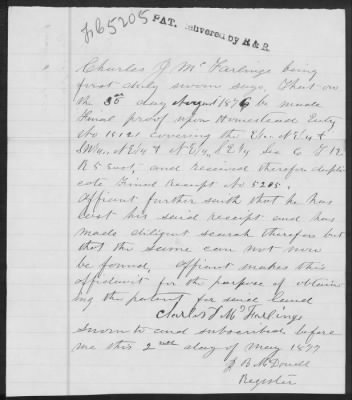 F.C. 5205 PAT. Delivered by R & R.
Charles J. McFarlings being
first duly sworn says, That on
the 30th day August 1876 he made
Final proof upon Homestead Entry
No 15121 covering the N.E/4 &
SW/4 N.E/4 & N.E/4 S.E/4 Sec 6 T 12
R 5 East, and received therefor dupli
cate Final Receipt No. 5205.
Affiant further saith that he has
lost his said receipt and has
made diligent search therefor but
that the same can not now
be found, Affiant makes this
affidavit for the purpose of obtain
ing the patent for said land
Charles J McFarlings
Sworn to and subscribed before
me this 2nd day of May 1877
J B McDowell
Register